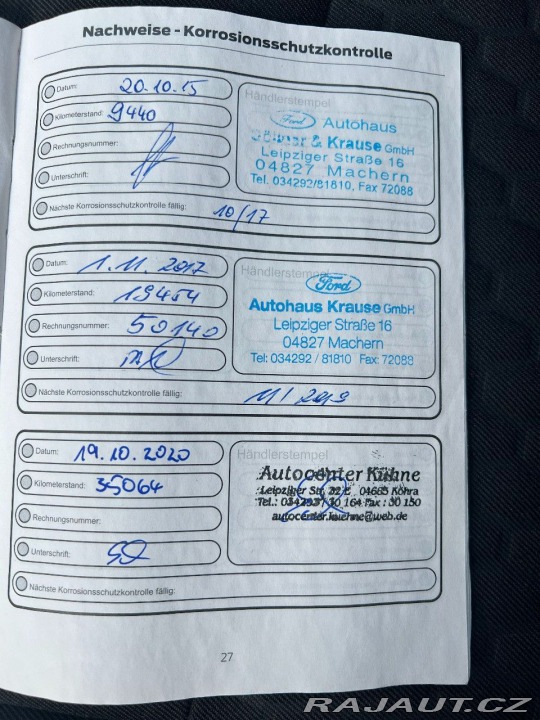 Nachweise - Korrosionsschutzkontrolle
Datum: 20.10.15
Händlerstempel
Kilometerstand: 9440
Rechnungsnummer:
Unterschrift:
Nächste Korrosionsschutzkontrolle fällig: 10/17
Ford Autohaus
& Krause GmbH
Leipziger Straße 16
04827 Machern
Tel. 034292/81810, Fax 72088
Datum: 1.11.2017
Händlerstempel
Kilometerstand: 19454
Rechnungsnummer: 50140
Unterschrift:
Nächste Korrosionsschutzkontrolle fällig: 11/2019
Ford
Autohaus Krause GmbH
Leipziger Straße 16
04827 Machern
Tel: 034292 / 81810 Fax: 72088
Datum: 19.10.2020
Händlerstempel
Kilometerstand: 35064
Rechnungsnummer:
Unterschrift:
Nächste Korrosionsschutzkontrolle fällig:
Autocenter Kühne
Leipziger Str. 04665 Kohra
164 Fax: 30 150
autocenter.kuehne@web.de
27
RAJAUT.CZ